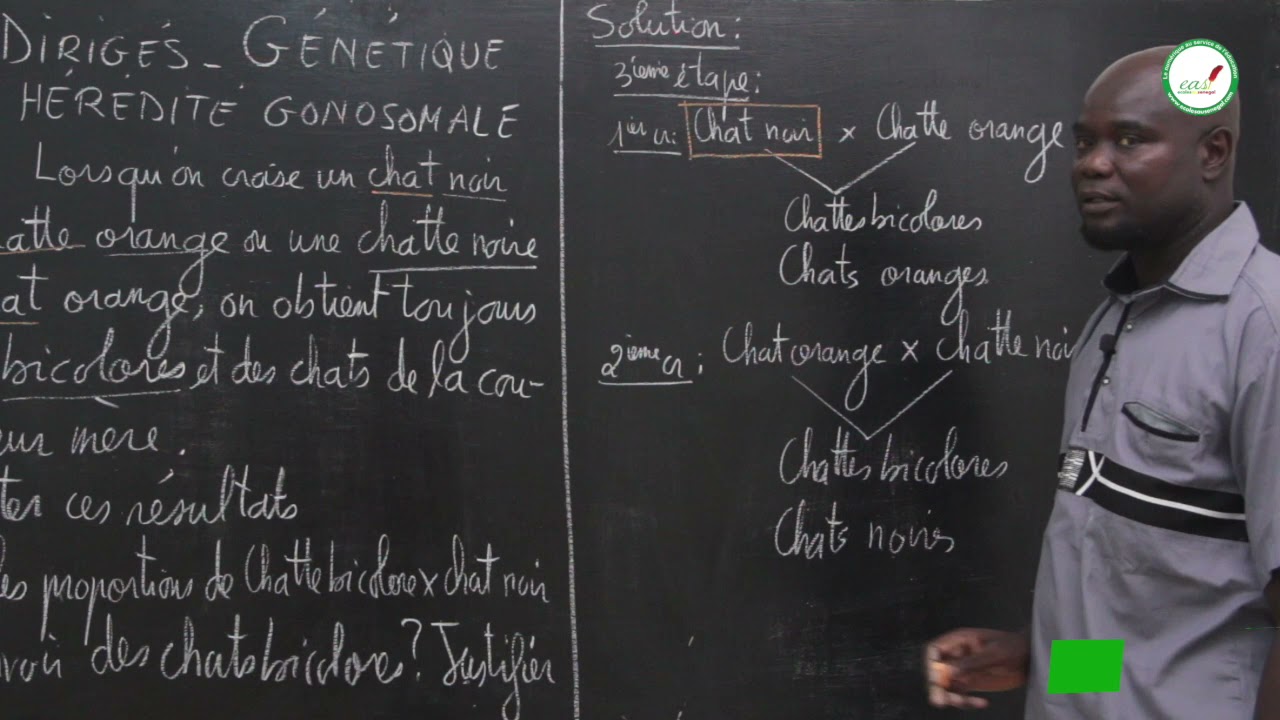 DIRIGÉS - GÉNÉTIQUE
HÉRÉDITÉ GONOSOMALE
Lorsqu'on croise un chat noir
atte orange ou une chatte noire
at orange, on obtient toujours
bicolores et des chats de la cou-
eur mère.
ter ces résultats
les proportions de Chatte bicolore x chat noir
voir des chats bicolores? Justifier
Solution:
3ieme étape:
1ier cr: Chat noir x Chatte orange
Chattes bicolores
Chats oranges
2ieme cr: Chat orange x chatte noi
Chattes bicolores
Chats noirs
Le numérique au service de l'éducation
eas
ecoles au senegal
www.ecolesausenegal.com